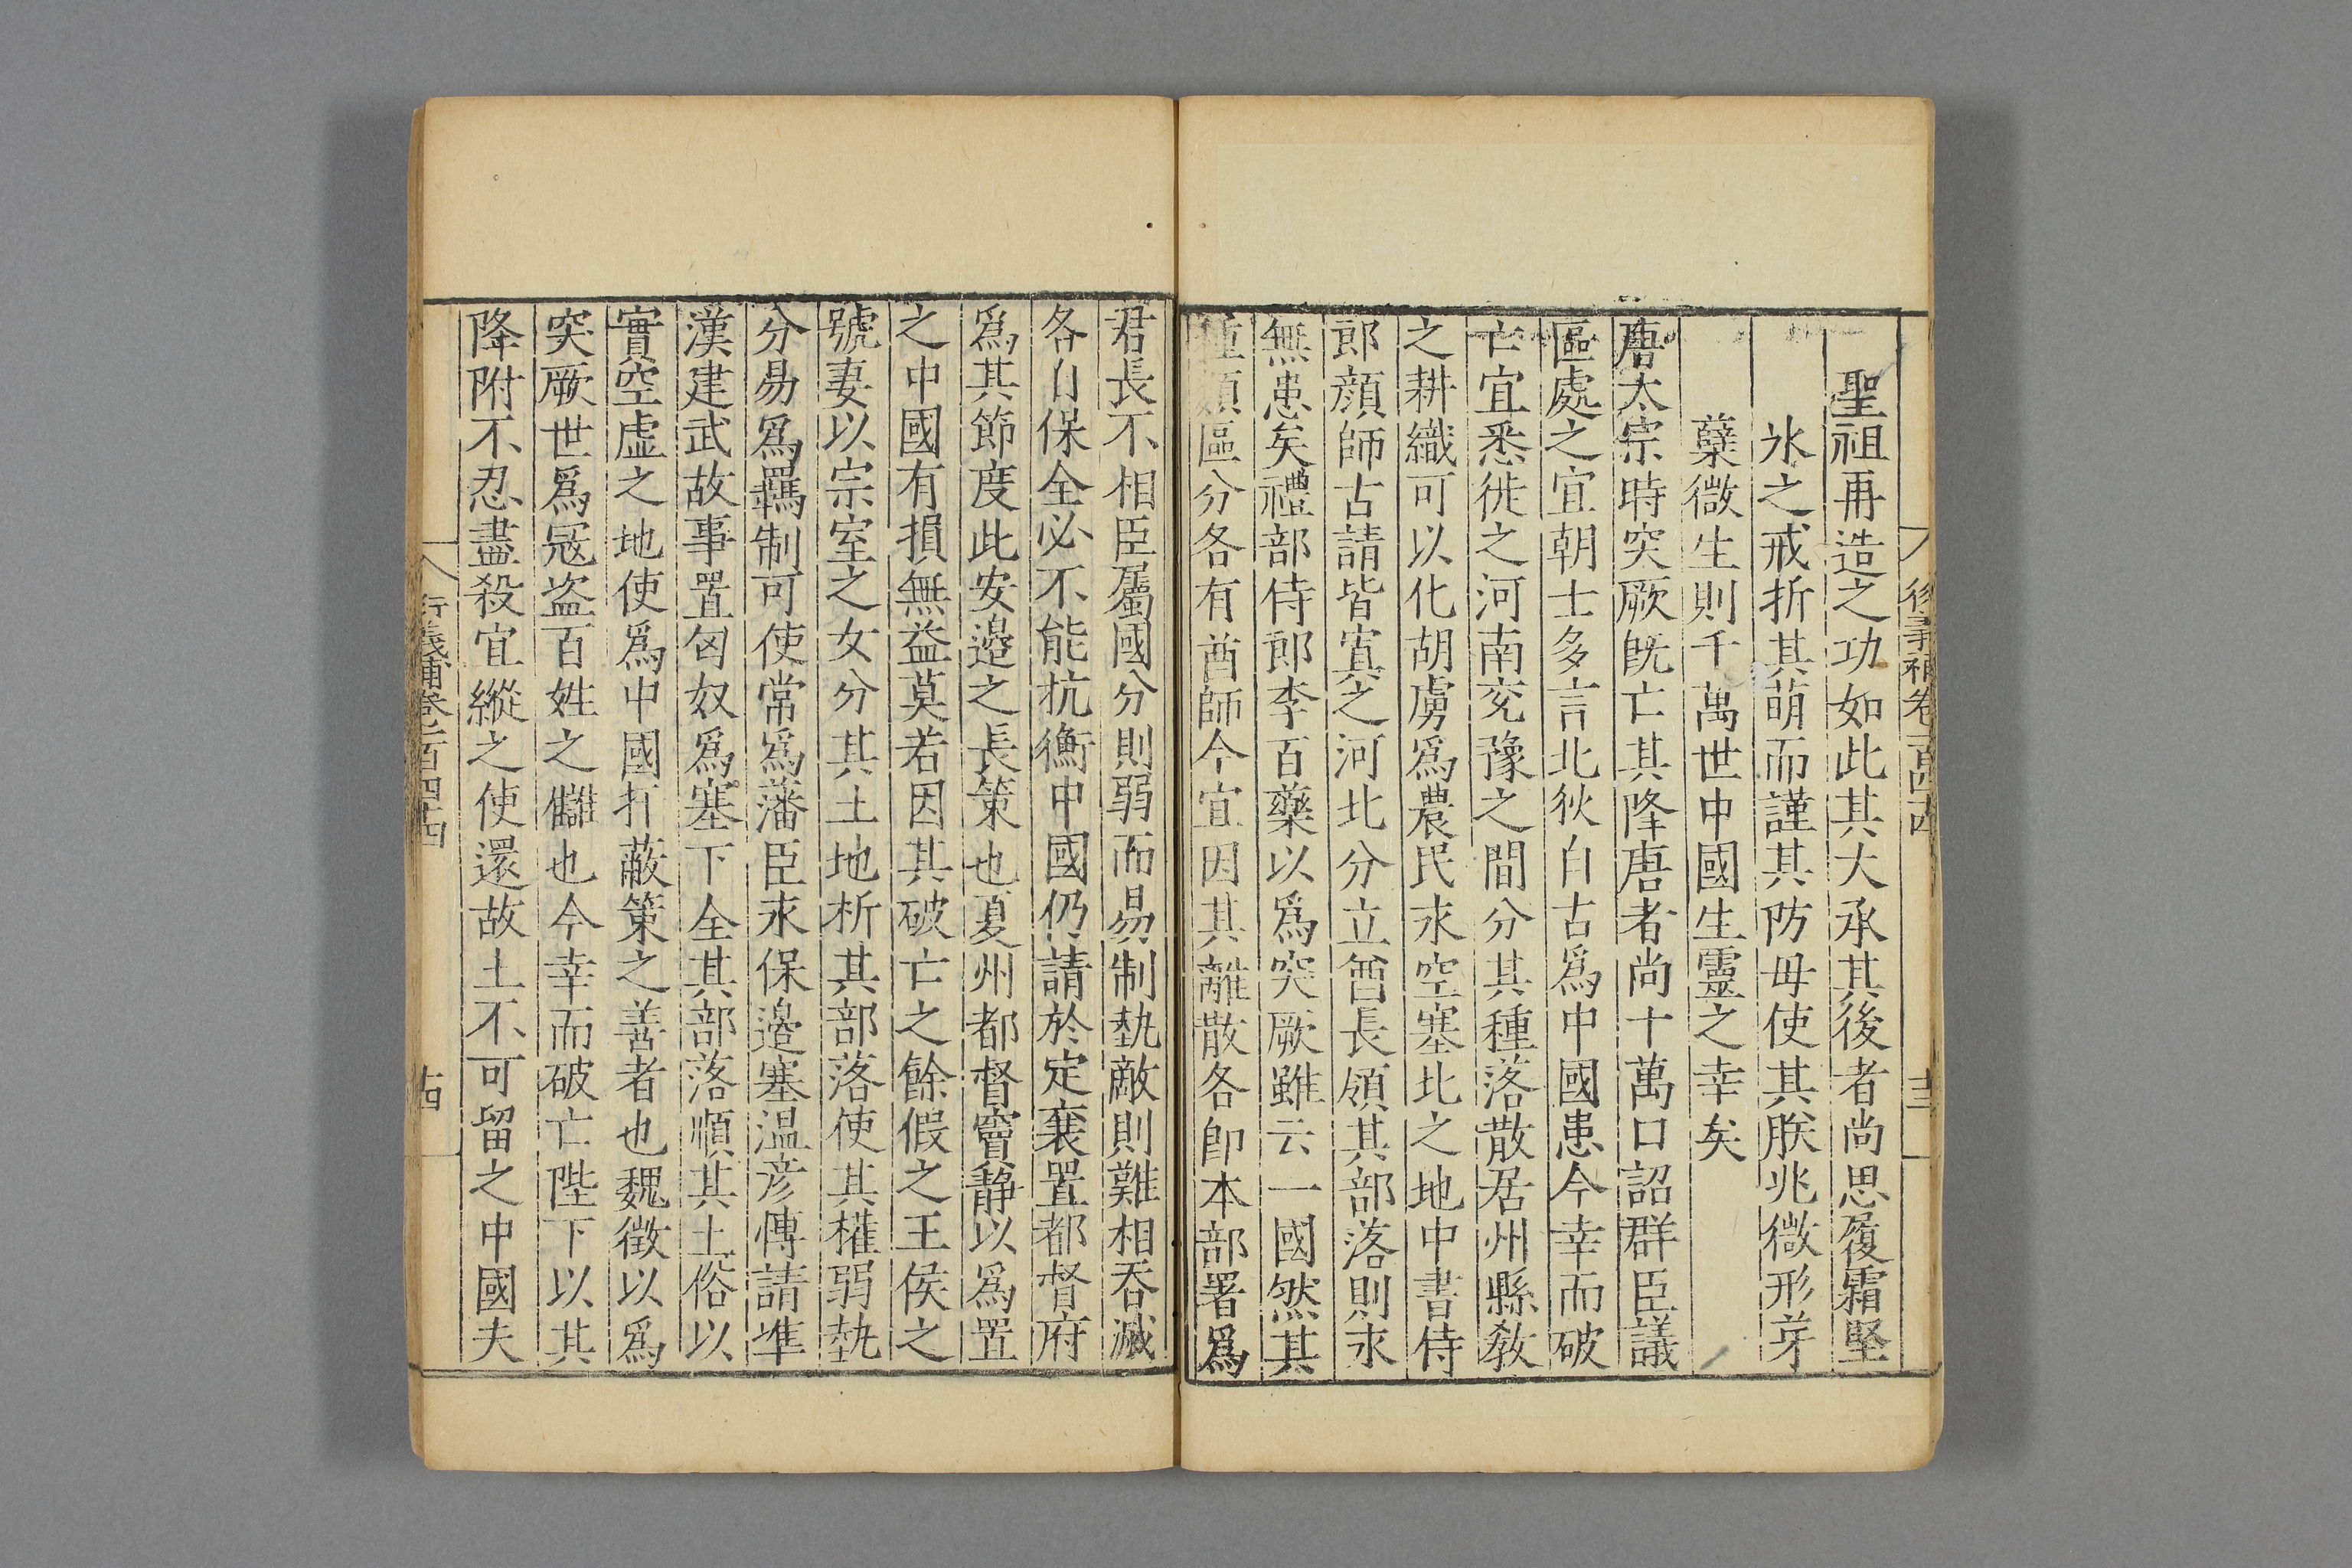 聖祖再造之功如此其大承其後者尚思履霜堅
氷之戒折其萌而謹其防毋使其朕兆微形芽
蘖微生則千萬世中國生靈之幸矣
唐太宗時突厥旣亡其降唐者尚十萬口詔群臣議
區處之宜朝士多言北狄自古爲中國患今幸而破
亡宜悉徙之河南兖豫之間分其種落散居州縣敎
之耕織可以化胡虜爲農民永空塞北之地中書侍
郎顔師古請皆寘之河北分立酋長領其部落則永
無患矣禮部侍郎李百藥以爲突厥雖云一國然其
種類區分各有酋師今宜因其離散各即本部署爲
君長不相臣屬國分則弱而易制埶敵則難相吞滅
各自保全必不能抗衡中國仍請於定襄置都督府
爲其節度此安邉之長策也夏州都督竇静以爲置
之中國有損無益莫若因其破亡之餘假之王侯之
號妻以宗室之女分其土地析其部落使其權弱埶
分易爲羈制可使常爲藩臣永保邉塞温彦博請凖
漢建武故事置匈奴爲塞下全其部落順其土俗以
實空虚之地使爲中國扞蔽策之善者也魏徵以爲
突厥世爲冦盗百姓之讎也今幸而破亡陛下以其
降附不忍盡殺宜縱之使還故土不可留之中國夫
行義補卷一百四十四
十四